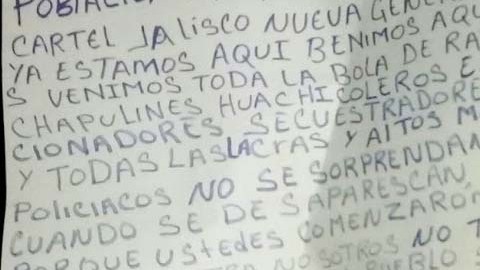 POBLACIO
CARTEL JALISCO NUEVA GEN
YA ESTAMOS AQUI BENIMOS AQU
S VENIMOS TODA LA BOLA DE RA
CHAPULINES HUACHICOLEROS E
CIONADORES SECUESTRADORE
Y TODAS LASLACRAS Y AltOS M
POLICIACOS NO SE SORPRENDAN
CUANDO SE DESAPARESCAN,
PORQUE UStEDES COMENZARON
NOSOTROS NO T
PUEBLO